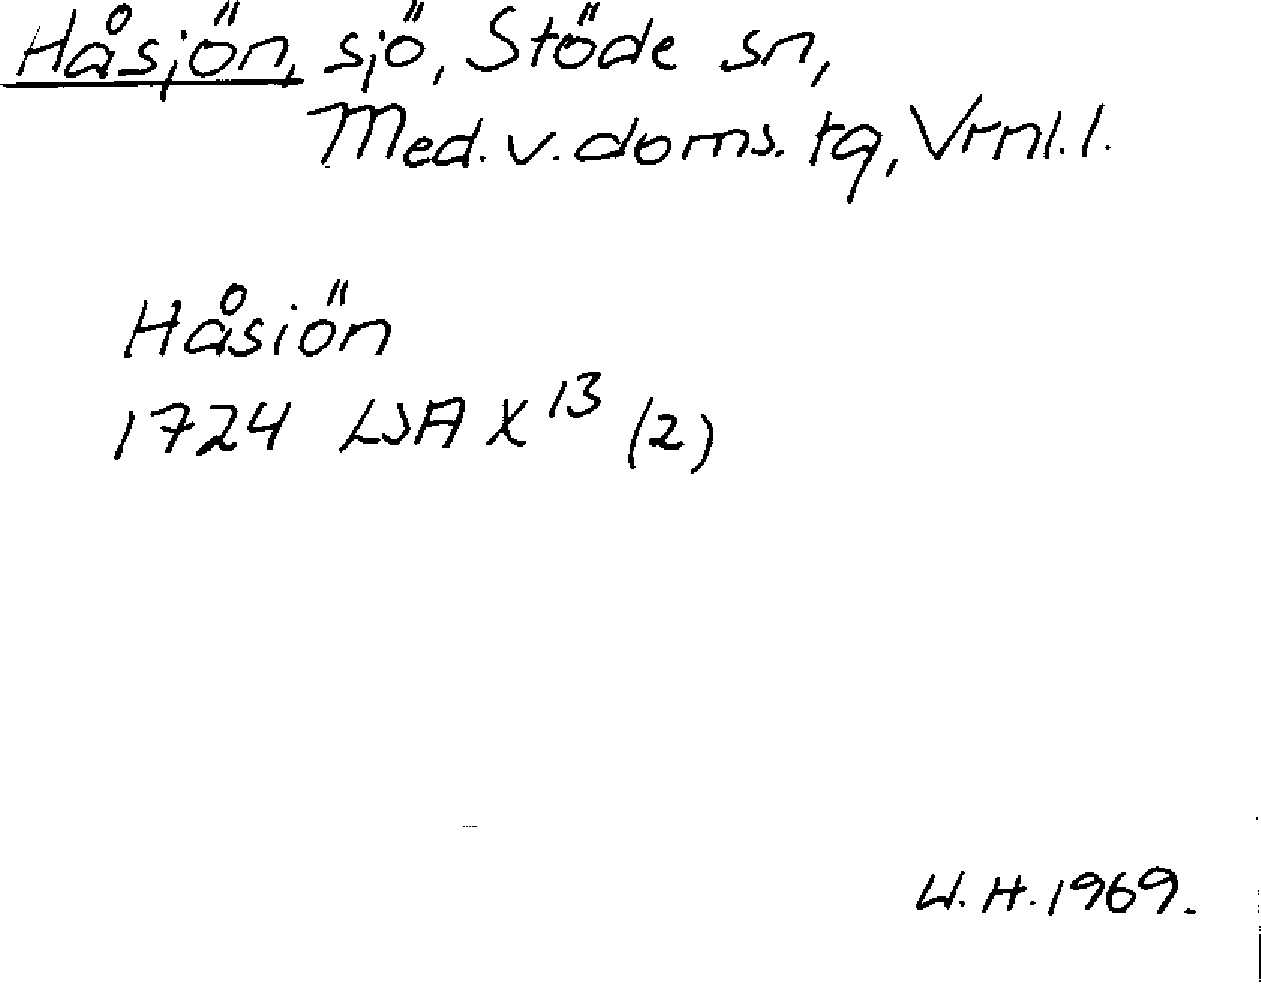 Håsjön, sjö, Stöde sn,
Med.v.doms. tg, Vrnl.l.
Håsiön
1724 LSA X 13 (2)
W.H.1969.